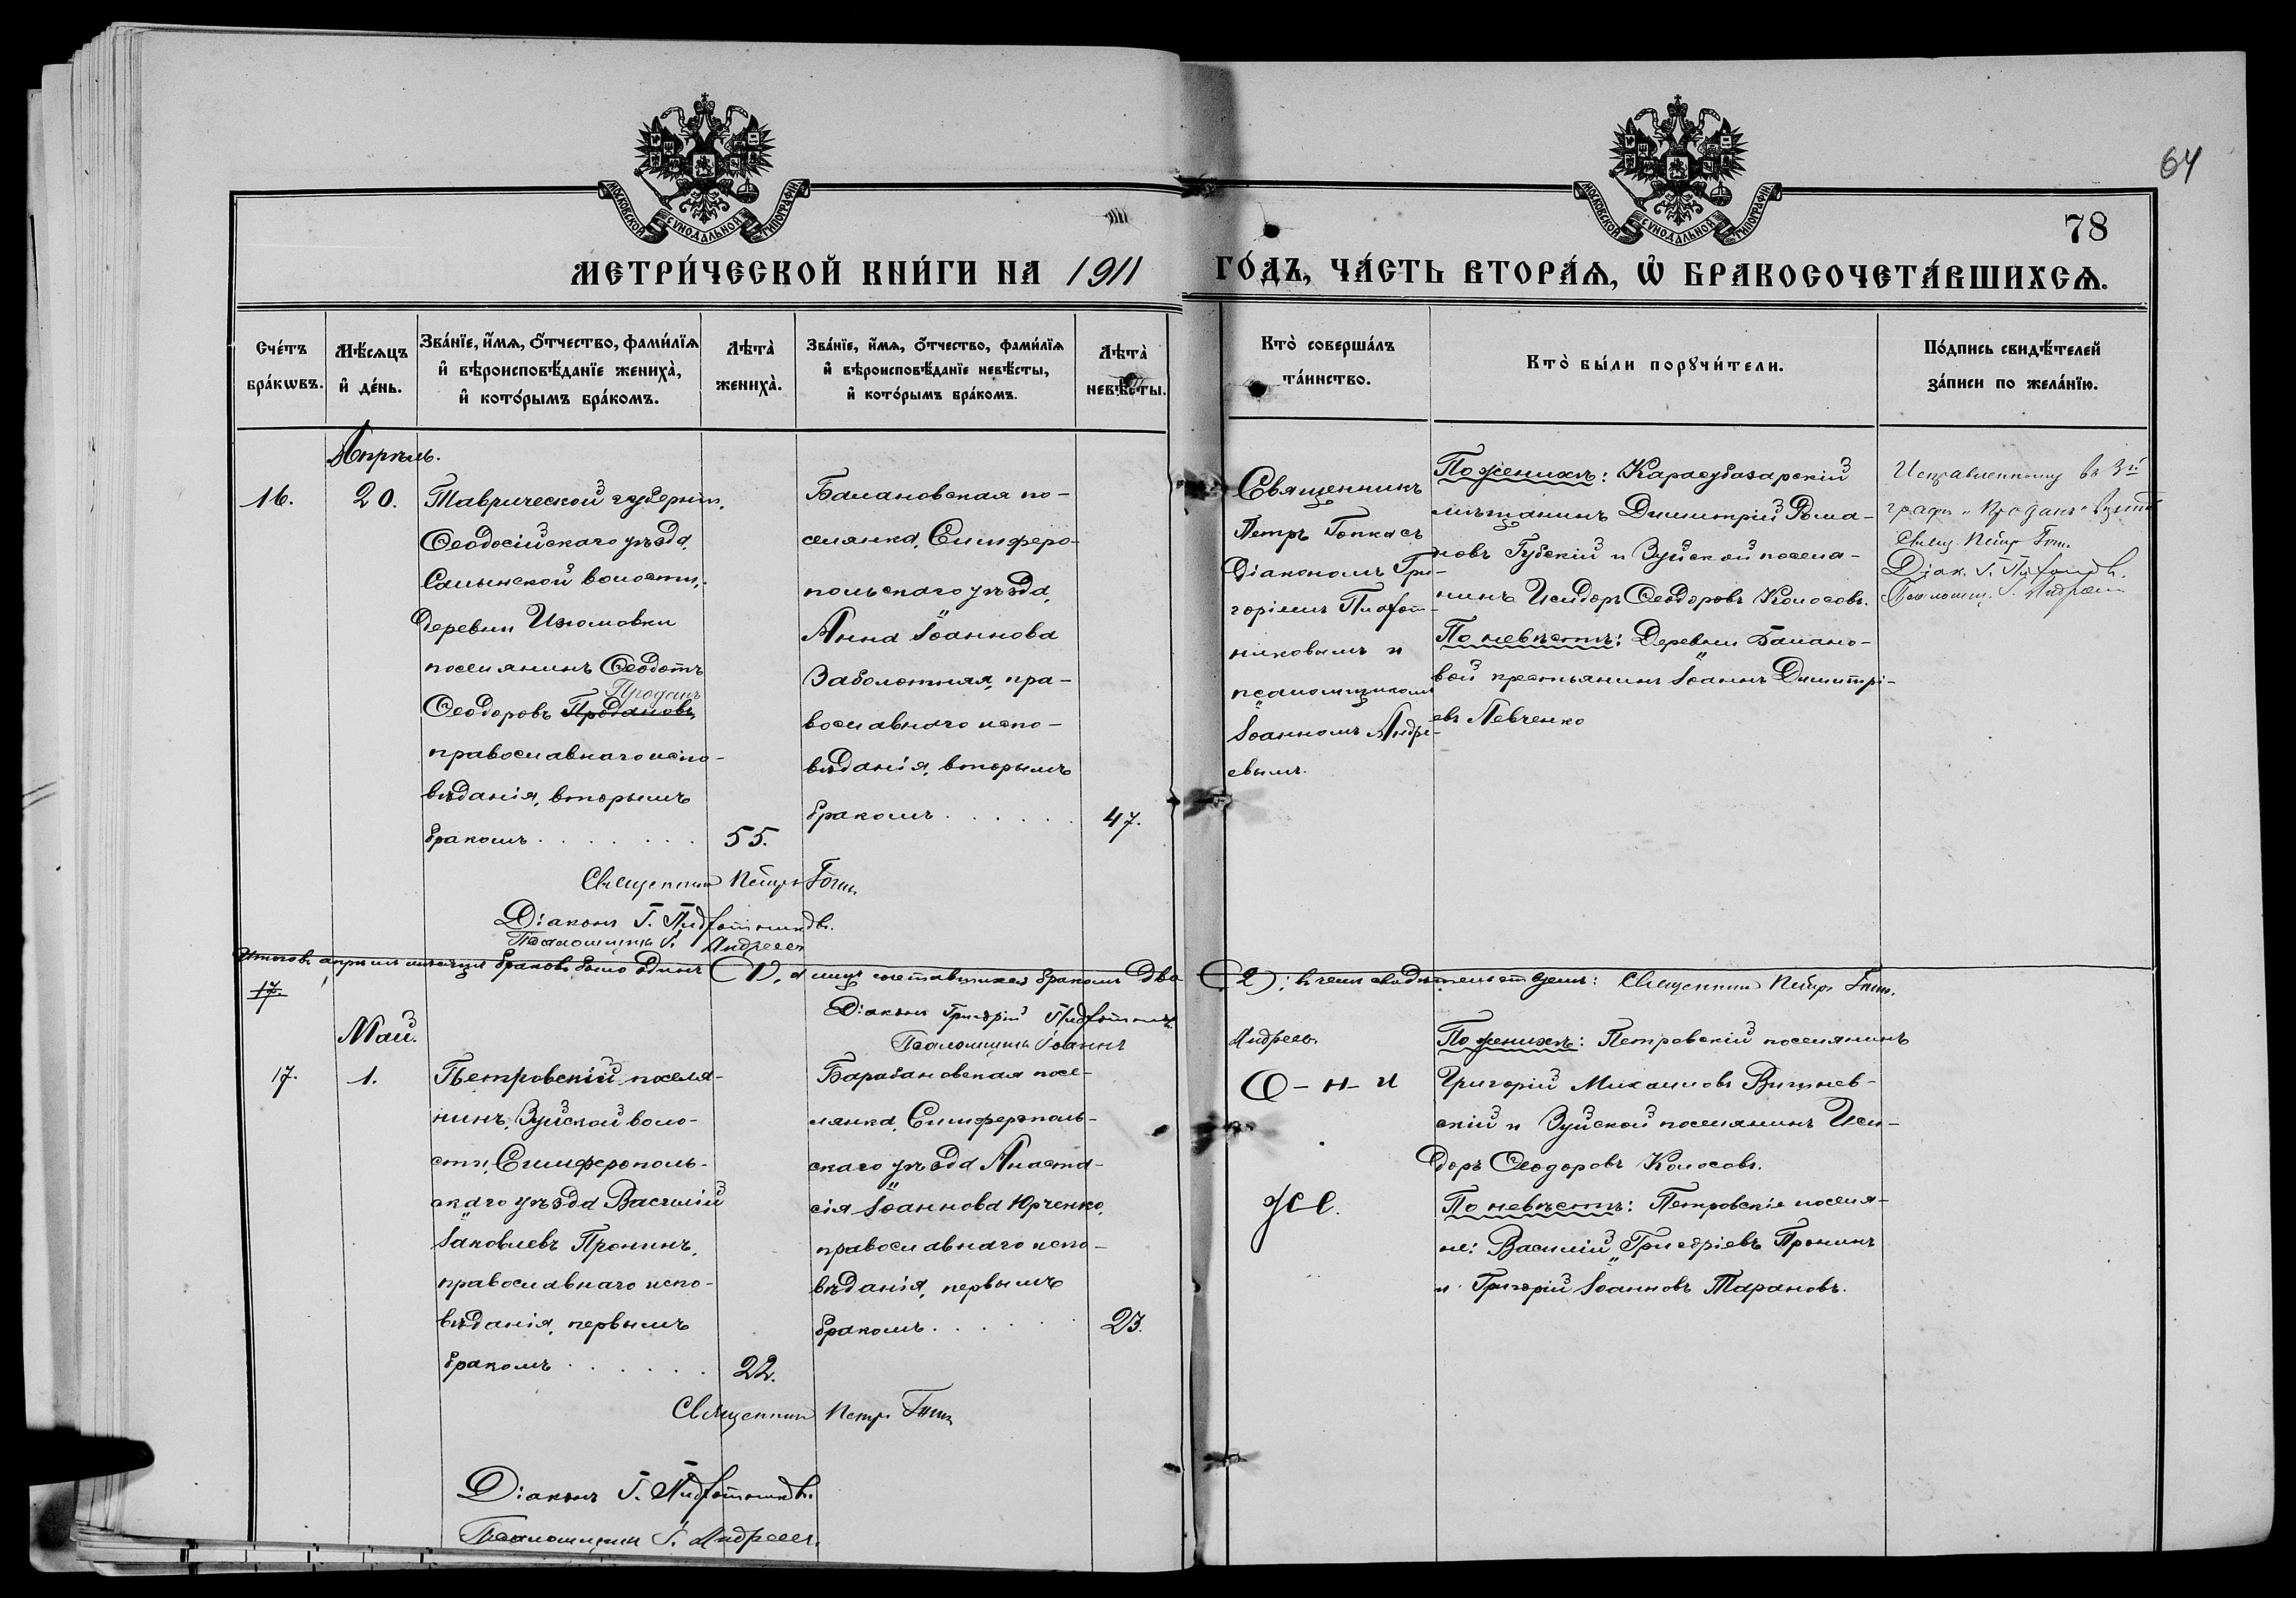 64
78
МОСКОВСКОЙ СѴНОДАЛЬНОЙ ТИПОГРАФІИ
МОСКОВСКОЙ СѴНОДАЛЬНОЙ ТИПОГРАФІИ
МЕТРИ́ЧЕСКОЙ КНИ́ГИ НА 1911 ГО́ДЪ, ЧА́СТЬ ВТОРА́Ѧ, Ѡ҆ БРАКОСОЧЕТА́ВШИХСѦ.
Сче́тъ бра́кѡвъ.
Мѣ́сѧцъ и҆ де́нь.
Зва́нїе, и҆́мѧ, ѻ҆́тчество, фами́лїѧ и҆ вѣроисповѣ́данїе жениха̀, и҆ кото́рымъ бра́комъ.
Лѣта̀ жениха̀.
Зва́нїе, и҆́мѧ, ѻ҆́тчество, фами́лїѧ и҆ вѣроисповѣ́данїе невѣ́сты, и҆ кото́рымъ бра́комъ.
Лѣта̀ невѣ́сты.
Кто̀ соверша́лъ та́инство.
Кто̀ бы́ли порꙋчи́тели.
По́дпись свидѣ́телей за́писи по жела́нїю.
Апрѣль.
16.
20.
Таврической губерніи,
Ѳеодосійскаго уѣзда,
волости,
деревни Изюмовки
поселянинъ Ѳеодотъ
Проданъ
Ѳеодоровъ Продановъ
православнаго испо-
вѣданія, вторымъ
бракомъ
55.
Балановская по-
селянка, Симферо-
польскаго уѣзда,
Анна Іоаннова
Заболотняя, пра-
вославнаго испо-
вѣданія, вторымъ
бракомъ
47.
Священникъ
Петръ съ
Діакономъ Гри-
горіемъ
никовымъ и
псаломщикомъ
Іоанномъ Андре-
евымъ.
По женихѣ: Карасубазарскій
мѣщанинъ Димитрій Рома-
новъ Губскій и Зуйской поселя-
нинъ Исидоръ Ѳеодоровъ Колосовъ.
По невѣстѣ: Деревни Балано-
вой крестьянинъ Іоаннъ Димитрі-
евъ Левченко
Исправленному въ 3й
графѣ „Проданъ“
Свящ. Петръ
Діак. Г.
Псаломщ. І. Андреевъ
Священникъ Петръ
Діаконъ Г.
Псаломщикъ І. Андреевъ
Итого въ апрѣлѣ мѣсяцѣ браковъ было одинъ (1), а лицъ сочетавшихся бракомъ два (2); въ чемъ свидѣтельствуемъ: Священникъ Петръ
17.
Діаконъ Григорій
Псаломщикъ Іоаннъ Андреевъ
Май.
17.
1.
Петровскій поселя-
нинъ, Зуйской воло-
сти, Симферополь-
скаго уѣзда Василій
Іаковлевъ Пронинъ,
православнаго испо-
вѣданія, первымъ
бракомъ
22.
Барабановская посе-
лянка, Симферополь-
скаго уѣзда Анаста-
сія Іоаннова Юрченко,
православнаго испо-
вѣданія, первымъ
бракомъ
23.
О - н - и
же.
По женихѣ: Петровскій поселянинъ
Григорій Михаиловъ Вишнев-
скій и Зуйской поселянинъ Иси-
доръ Ѳеодоровъ Колосовъ.
По невѣстѣ: Петровскіе поселя-
не: Василій Григоріевъ Пронинъ
и Григорій Іоанновъ Тарановъ.
Священникъ Петръ
Діаконъ Г.
Псаломщикъ І. Андреевъ.